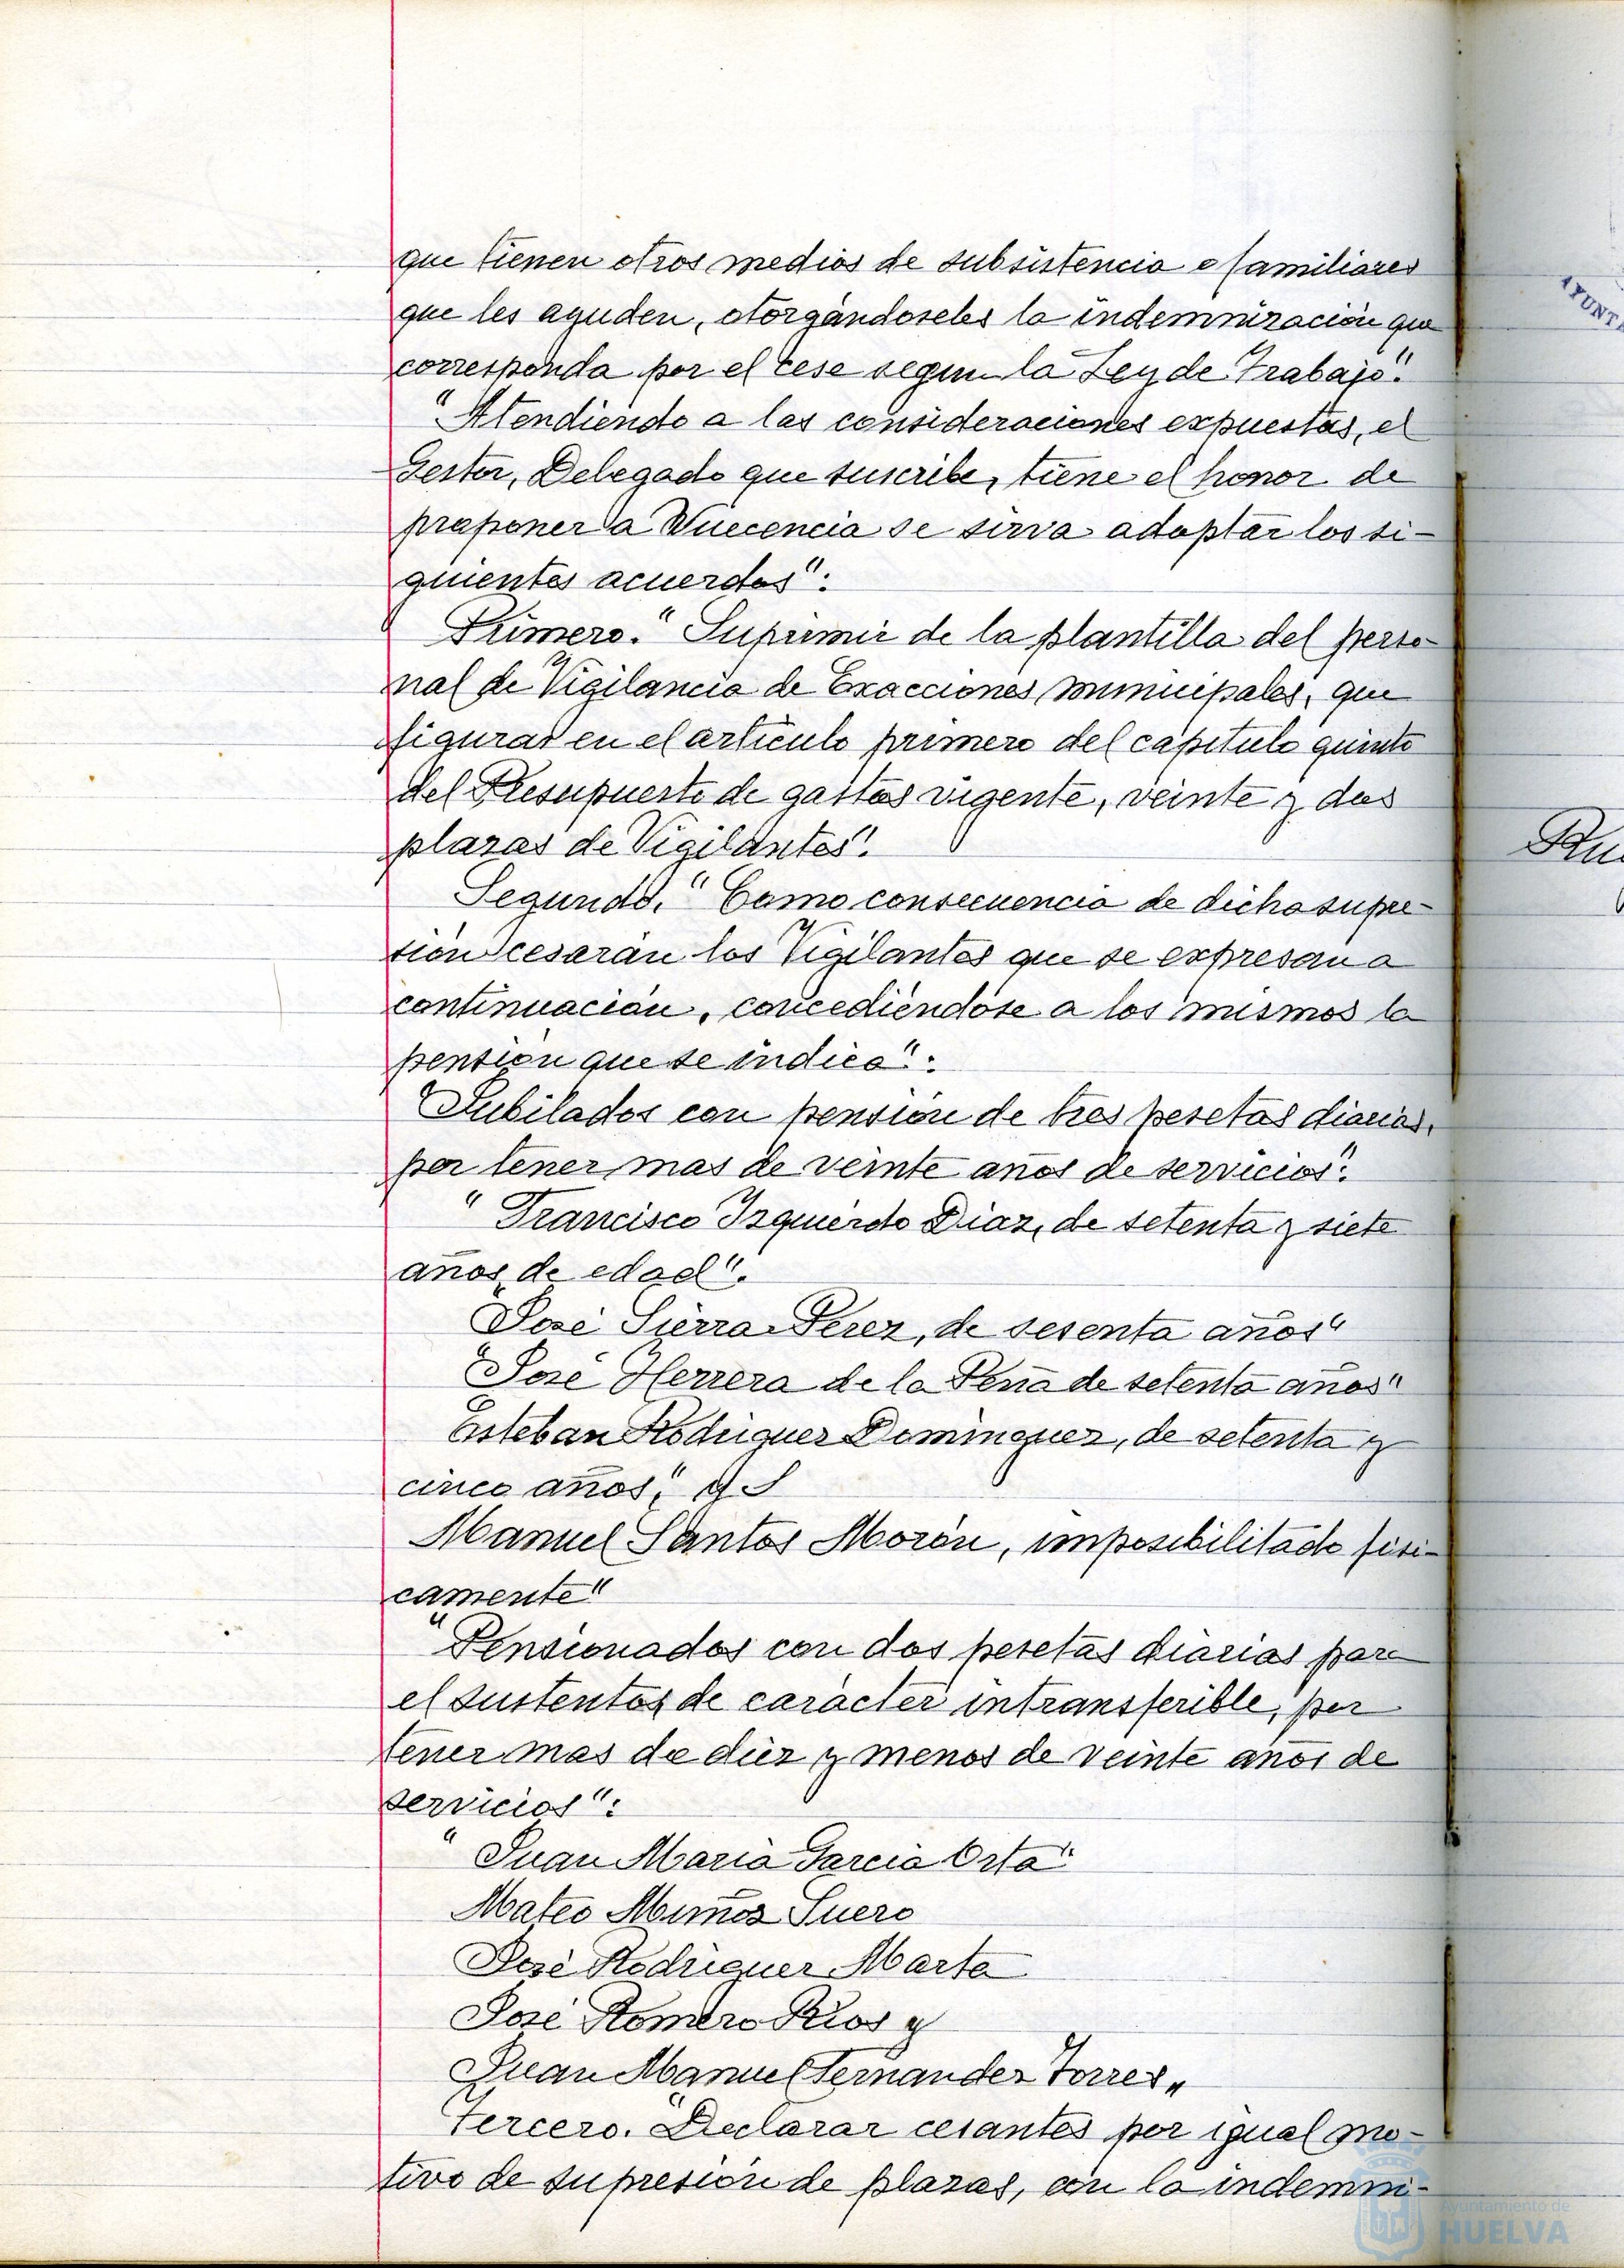 que tienen otros medios de subsistencia o familiares
que les ayuden, otorgándoseles la indemnización que
corresponda por el cese segun la Ley de Trabajo".
"Atendiendo a las consideraciones expuestas, el
Gestor, Delegado que suscribe, tiene el honor de
proponer a Vuecencia se sirva adoptar los si-
guientes acuerdos":
Primero." Suprimir de la plantilla del perso-
nal de Vigilancia de Exacciones municipales, que
figuran en el articulo primero del capitulo quinto
del Presupuesto de gastos vigente, veinte y dos
plazas de Vigilantes".
Segundo." Como consecuencia de dicha supre-
sion cesarán los Vigilantes que se expresan a
continuación, concediéndose a los mismos la
pension que se indica":
"Jubilados con pensión de tres pesetas diarias,
por tener mas de veinte años de servicios".
"Francisco Izquierdo Diaz, de setenta y siete
años de edad".
José Sierra Perez, de sesenta años"
"José Herrera de la Peña de setenta años"
Esteban Rodriguez Dominguez, de setenta y
cinco años", y
Manuel Santos Morón, imposibilitado fisi-
camente"
"Pensionados con dos pesetas diarias para
el sustento, de carácter intransferible, por
tener mas de diez y menos de veinte años de
servicios":
"Juan Maria Garcia Orta"
Mateo Muñoz Suero
José Rodriguez Marta
José Romero Rios y
Juan Manuel Fernandez Torres"
Tercero. "Declarar cesantes por igual mo-
tivo de supresión de plazas, con la indemni-
Ayuntamiento de
HUELVA